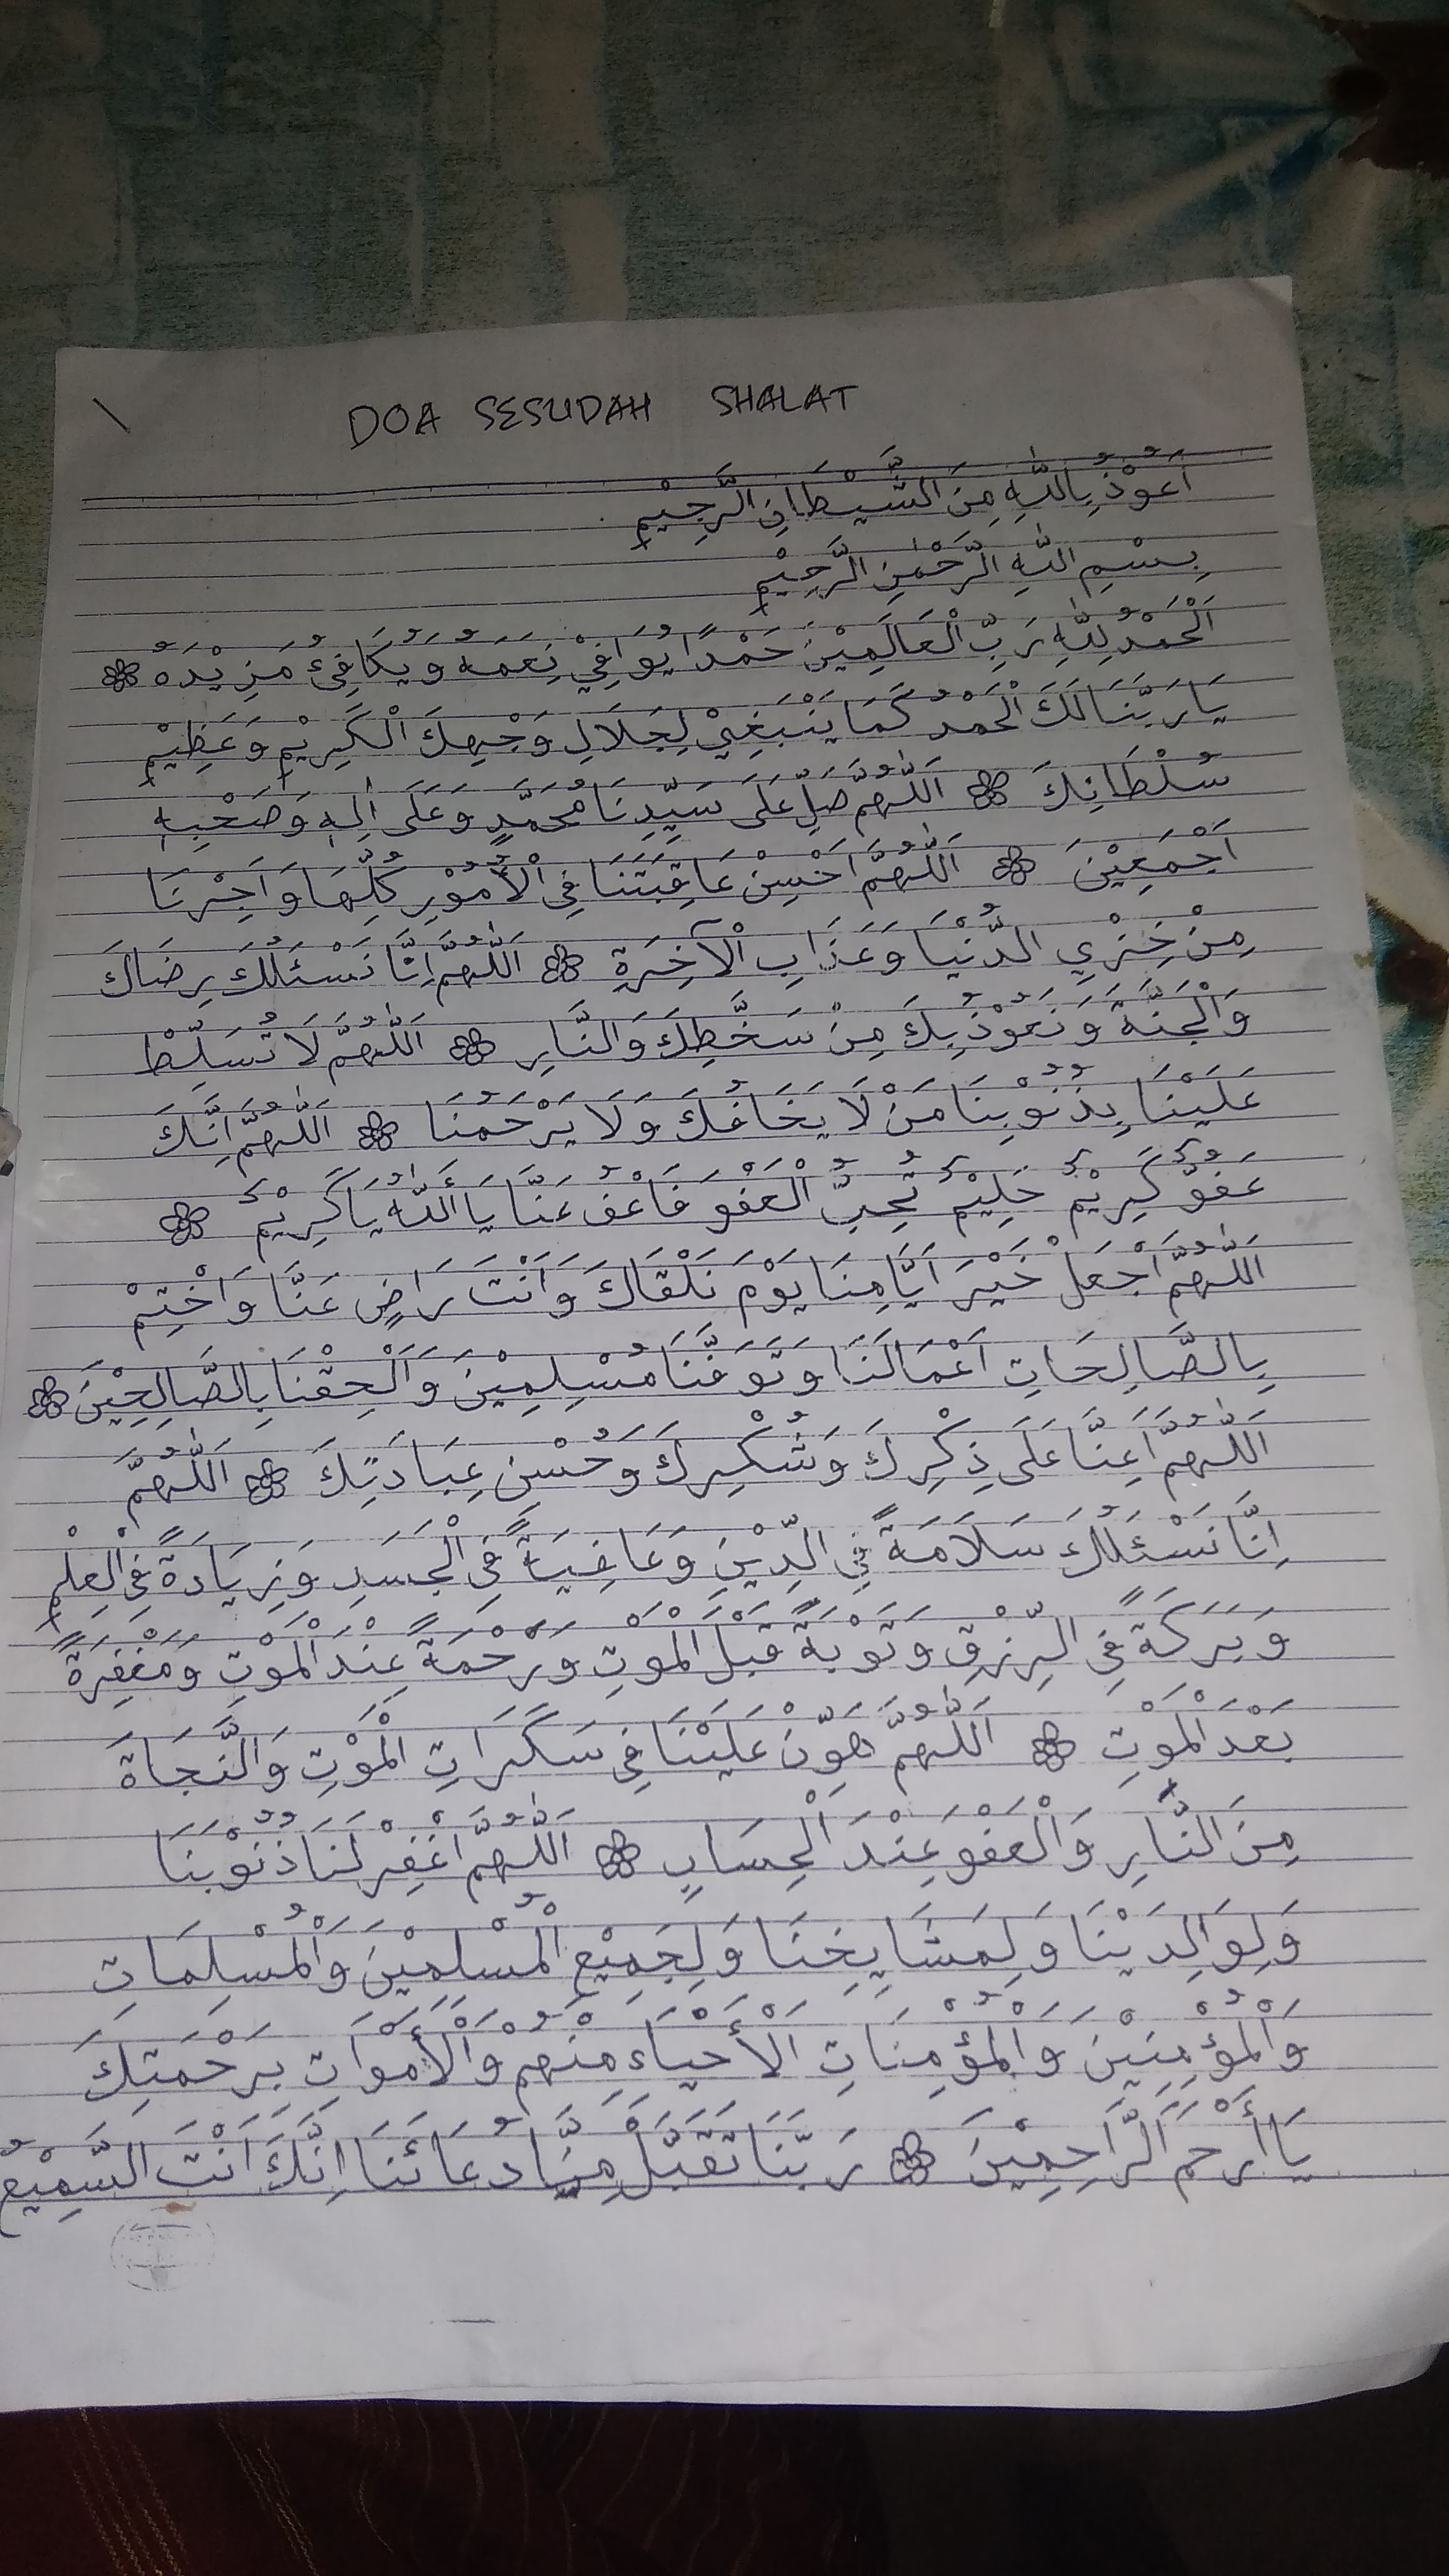 DOA SESUDAH SHALAT
اَعُوْذُ بِاللّٰهِ مِنَ الشَّيْطَانِ الرَّجِيْمِ
بِسْمِ اللّٰهِ الرَّحْمٰنِ الرَّحِيْمِ
اَلْحَمْدُ لِلّٰهِ رَبِّ الْعَالَمِيْنَ حَمْدًا يُوَافِيْ نِعَمَهُ وَيُكَافِئُ مَزِيْدَهُ
يَا رَبَّنَا لَكَ الْحَمْدُ كَمَا يَنْبَغِيْ لِجَلَالِ وَجْهِكَ الْكَرِيْمِ وَعَظِيْمِ
سُلْطَانِكَ اَللّٰهُمَّ صَلِّ عَلَى سَيِّدِنَا مُحَمَّدٍ وَعَلَى اٰلِهٖ وَصَحْبِهٖ
اَجْمَعِيْنَ اَللّٰهُمَّ اَحْسِنْ عَاقِبَتَنَا فِى الْأُمُوْرِ كُلِّهَا وَاَجِرْنَا
مِنْ خِزْيِ الدُّنْيَا وَعَذَابِ الْآخِرَةِ اَللّٰهُمَّ اِنَّا نَسْئَلُكَ رِضَاكَ
وَالْجَنَّةَ وَنَعُوْذُ بِكَ مِنْ سَخَطِكَ وَالنَّارِ اَللّٰهُمَّ لَا تُسَلِّطْ
عَلَيْنَا بِذُنُوْبِنَا مَنْ لَا يَخَافُكَ وَلَا يَرْحَمُنَا اَللّٰهُمَّ اِنَّكَ
عَفُوٌّ كَرِيْمٌ حَلِيْمٌ تُحِبُّ الْعَفْوَ فَاعْفُ عَنَّا يَا أَللّٰهُ يَا كَرِيْمُ
اَللّٰهُمَّ اجْعَلْ خَيْرَ اَيَّامِنَا يَوْمَ نَلْقَاكَ وَاَنْتَ رَاضٍ عَنَّا وَاخْتِمْ
بِالصَّالِحَاتِ اَعْمَالَنَا وَتَوَفَّنَا مُسْلِمِيْنَ وَاَلْحِقْنَا بِالصَّالِحِيْنَ
اَللّٰهُمَّ اَعِنَّا عَلَى ذِكْرِكَ وَشُكْرِكَ وَحُسْنِ عِبَادَتِكَ اَللّٰهُمَّ
اِنَّا نَسْئَلُكَ سَلَامَةً فِي الدِّيْنِ وَعَافِيَةً فِى الْجَسَدِ وَزِيَادَةً فِى الْعِلْمِ
وَبَرَكَةً فِى الرِّزْقِ وَتَوْبَةً قَبْلَ الْمَوْتِ وَرَحْمَةً عِنْدَ الْمَوْتِ وَمَغْفِرَةً
بَعْدَ الْمَوْتِ اَللّٰهُمَّ هَوِّنْ عَلَيْنَا فِى سَكَرَاتِ الْمَوْتِ وَالنَّجَاةَ
مِنَ النَّارِ وَالْعَفْوَ عِنْدَ الْحِسَابِ اَللّٰهُمَّ اغْفِرْ لَنَا ذُنُوْبَنَا
وَلِوَالِدَيْنَا وَلِمَشَايِخِنَا وَلِجَمِيْعِ الْمُسْلِمِيْنَ وَالْمُسْلِمَاتِ
وَالْمُؤْمِنِيْنَ وَالْمُؤْمِنَاتِ اَلْأَحْيَاءِ مِنْهُمْ وَالْأَمْوَاتِ بِرَحْمَتِكَ
يَا أَرْحَمَ الرَّاحِمِيْنَ رَبَّنَا تَقَبَّلْ مِنَّا دُعَائَنَا اِنَّكَ اَنْتَ السَّمِيْعُ